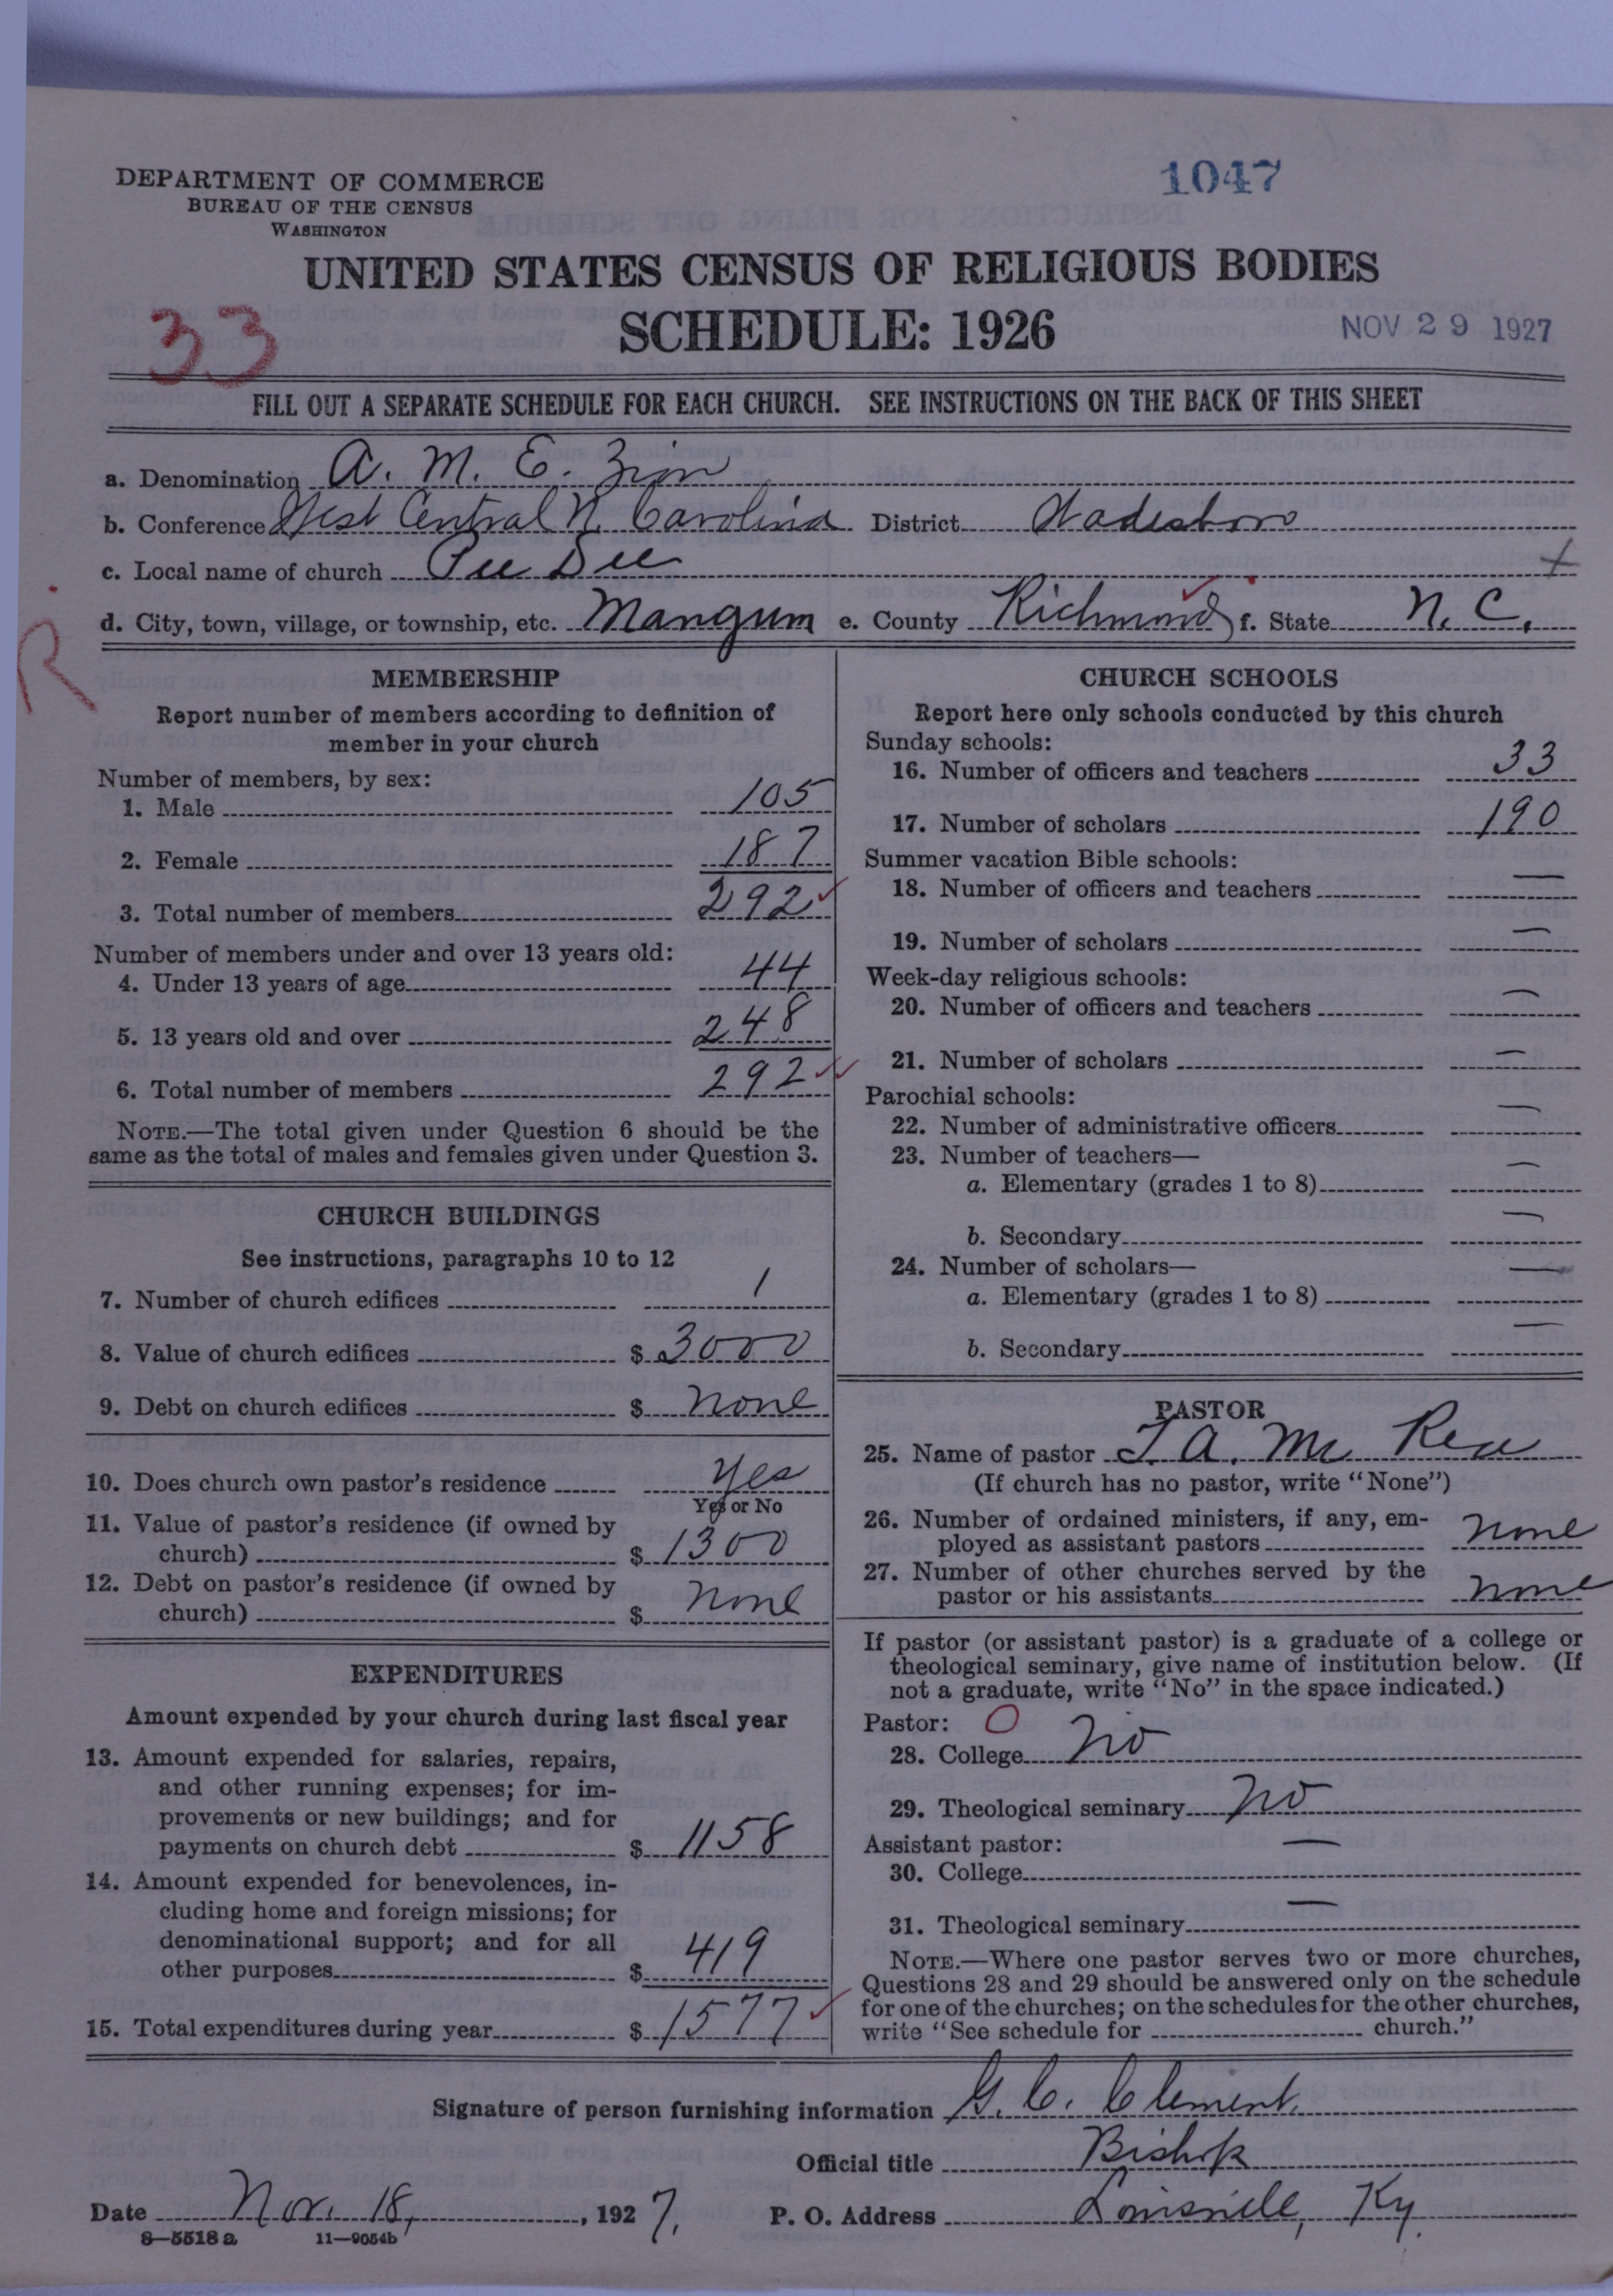 1047
DEPARTMENT OF COMMERCE
BUREAU OF THE CENSUS
WASHINGTON
UNITED STATES CENSUS OF RELIGIOUS BODIES
33
SCHEDULE: 1926
NOV 29 1927
FILL OUT A SEPARATE SCHEDULE FOR EACH CHURCH. SEE INSTRUCTIONS ON THE BACK OF THIS SHEET
a. Denomination A. M. E. Zion
b. Conference West Central N. Carolina District Wadesboro
c. Local name of church Pee Dee
d. City, town, village, or township, etc. Mangum e. County Richmond f. State N. C.
R
MEMBERSHIP
Report number of members according to definition of
member in your church
Number of members, by sex:
1. Male 105
2. Female 187
3. Total number of members 292
Number of members under and over 13 years old:
4. Under 13 years of age 44
5. 13 years old and over 248
6. Total number of members 292
NOTE.—The total given under Question 6 should be the
same as the total of males and females given under Question 3.
CHURCH BUILDINGS
See instructions, paragraphs 10 to 12
7. Number of church edifices 1
8. Value of church edifices $ 3000
9. Debt on church edifices $ none
10. Does church own pastor's residence yes
Yes or No
11. Value of pastor's residence (if owned by
church) $ 1300
12. Debt on pastor's residence (if owned by
church) $ none
EXPENDITURES
Amount expended by your church during last fiscal year
13. Amount expended for salaries, repairs,
and other running expenses; for im-
provements or new buildings; and for
payments on church debt $ 1158
14. Amount expended for benevolences, in-
cluding home and foreign missions; for
denominational support; and for all
other purposes $ 419
15. Total expenditures during year $ 1577
CHURCH SCHOOLS
Report here only schools conducted by this church
Sunday schools:
16. Number of officers and teachers 33
17. Number of scholars 190
Summer vacation Bible schools:
18. Number of officers and teachers —
19. Number of scholars —
Week-day religious schools:
20. Number of officers and teachers —
21. Number of scholars —
Parochial schools:
22. Number of administrative officers —
23. Number of teachers—
a. Elementary (grades 1 to 8) —
b. Secondary —
24. Number of scholars—
a. Elementary (grades 1 to 8) —
b. Secondary —
PASTOR
25. Name of pastor T. A. Mc Rea
(If church has no pastor, write "None")
26. Number of ordained ministers, if any, em-
ployed as assistant pastors none
27. Number of other churches served by the
pastor or his assistants none
If pastor (or assistant pastor) is a graduate of a college or
theological seminary, give name of institution below. (If
not a graduate, write "No" in the space indicated.)
Pastor: O
28. College No
29. Theological seminary No
Assistant pastor:
30. College —
31. Theological seminary —
NOTE.—Where one pastor serves two or more churches,
Questions 28 and 29 should be answered only on the schedule
for one of the churches; on the schedules for the other churches,
write "See schedule for church."
Signature of person furnishing information G. C. Clement.
Official title Bishop
Date Nov. 18, 1927. P. O. Address Louisville, Ky.
8—5518 a 11—9054b